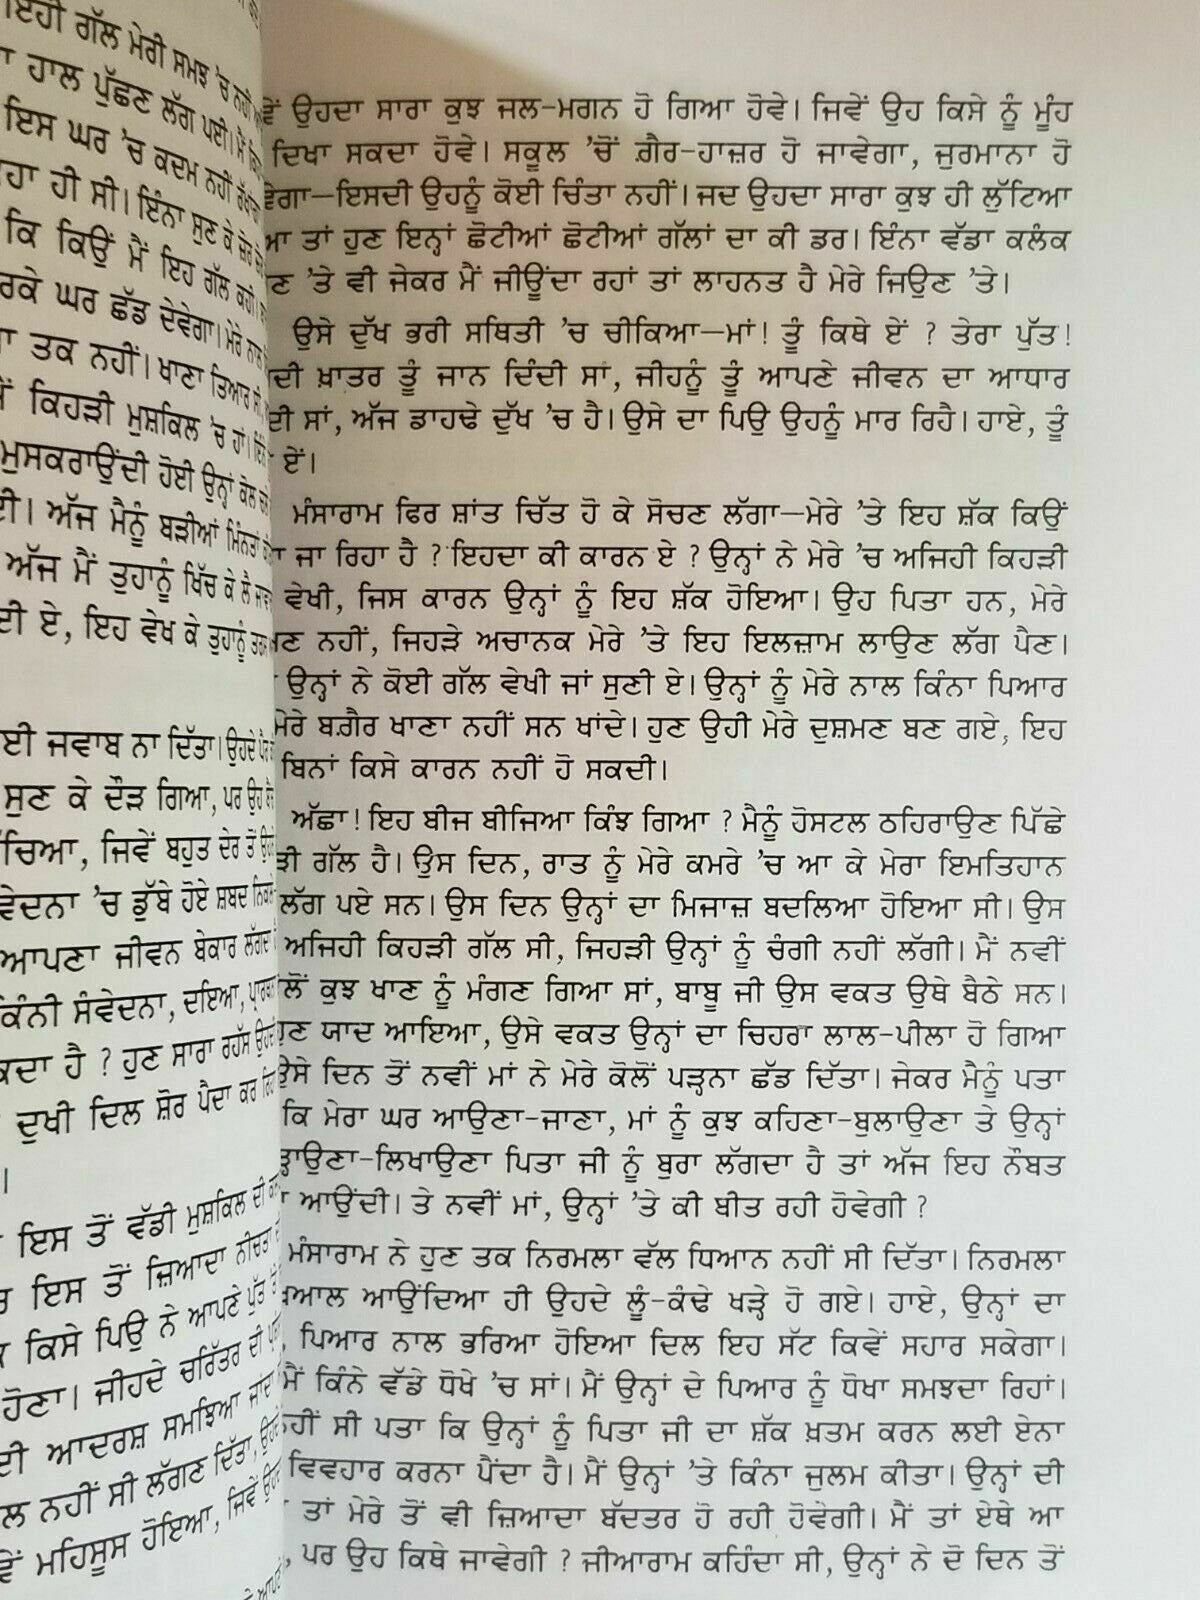 ਇਹੀ ਗੱਲ ਮੇਰੀ ਸਮਝ 'ਚ ਨਹੀਂ
ਹਾਲ ਪੁੱਛਣ ਲੱਗ ਪਈ। ਮੈਂ
ਇਸ ਘਰ 'ਚ ਕਦਮ ਨਹੀਂ ਰੱਖਾਂਗਾ
ਹੀ ਸੀ। ਇੰਨਾ ਸੁਣ ਕੇ ਜ਼ੋਰ
ਕਿ ਕਿਉਂ ਮੈਂ ਇਹ ਗੱਲ ਕਹੀ।
ਘਰ ਛੱਡ ਦੇਵੇਗਾ। ਮੇਰੇ ਨਾਲ
ਤਕ ਨਹੀਂ। ਖਾਣਾ ਤਿਆਰ ਸੀ,
ਕਿਹੜੀ ਮੁਸ਼ਕਿਲ 'ਚ ਹਾਂ।
ਮੁਸਕਰਾਉਂਦੀ ਹੋਈ ਉਨ੍ਹਾਂ ਕੋਲ
ਅੱਜ ਮੈਨੂੰ ਬੜੀਆਂ ਮਿੰਨਤਾਂ
ਅੱਜ ਮੈਂ ਤੁਹਾਨੂੰ ਖਿੱਚ ਕੇ ਲੈ
ਏ, ਇਹ ਵੇਖ ਕੇ ਤੁਹਾਨੂੰ
ਜਵਾਬ ਨਾ ਦਿੱਤਾ। ਉਹਦੇ ਪੈਰ
ਸੁਣ ਕੇ ਦੌੜ ਗਿਆ, ਪਰ ਉਹ
ਜਿਵੇਂ ਬਹੁਤ ਦੇਰ ਤੋਂ
'ਚ ਡੁੱਬੇ ਹੋਏ ਸ਼ਬਦ
ਆਪਣਾ ਜੀਵਨ ਬੇਕਾਰ ਲੱਗਦਾ
ਕਿੰਨੀ ਸੰਵੇਦਨਾ, ਦਇਆ,
ਹੈ ? ਹੁਣ ਸਾਰਾ ਰਹੱਸ
ਦੁਖੀ ਦਿਲ ਸ਼ੋਰ ਪੈਦਾ ਕਰ
।
ਇਸ ਤੋਂ ਵੱਡੀ ਮੁਸ਼ਕਿਲ ਦੀ
ਇਸ ਤੋਂ ਜ਼ਿਆਦਾ ਨੀਚਤਾ
ਕਿਸੇ ਪਿਓ ਨੇ ਆਪਣੇ ਪੁੱਤ
ਹੋਣਾ। ਜੀਹਦੇ ਚਰਿੱਤਰ ਦੀ
ਆਦਰਸ਼ ਸਮਝਿਆ ਜਾਂਦਾ
ਨਹੀਂ ਸੀ ਲੱਗਣ ਦਿੱਤਾ,
ਮਹਿਸੂਸ ਹੋਇਆ, ਜਿਵੇਂ
ਉਹਦਾ ਸਾਰਾ ਕੁਝ ਜਲ-ਮਗਨ ਹੋ ਗਿਆ ਹੋਵੇ। ਜਿਵੇਂ ਉਹ ਕਿਸੇ ਨੂੰ ਮੂੰਹ
ਦਿਖਾ ਸਕਦਾ ਹੋਵੇ। ਸਕੂਲ 'ਚੋਂ ਗ਼ੈਰ-ਹਾਜ਼ਰ ਹੋ ਜਾਵੇਗਾ, ਜੁਰਮਾਨਾ ਹੋ
ਵੇਗਾ—ਇਸਦੀ ਉਹਨੂੰ ਕੋਈ ਚਿੰਤਾ ਨਹੀਂ। ਜਦ ਉਹਦਾ ਸਾਰਾ ਕੁਝ ਹੀ ਲੁੱਟਿਆ
ਤਾਂ ਹੁਣ ਇਨ੍ਹਾਂ ਛੋਟੀਆਂ ਛੋਟੀਆਂ ਗੱਲਾਂ ਦਾ ਕੀ ਡਰ। ਇੰਨਾ ਵੱਡਾ ਕਲੰਕ
ਣ 'ਤੇ ਵੀ ਜੇਕਰ ਮੈਂ ਜੀਊਂਦਾ ਰਹਾਂ ਤਾਂ ਲਾਹਨਤ ਹੈ ਮੇਰੇ ਜਿਉਣ 'ਤੇ।
ਉਸੇ ਦੁੱਖ ਭਰੀ ਸਥਿਤੀ 'ਚ ਚੀਕਿਆ—ਮਾਂ! ਤੂੰ ਕਿਥੇ ਏਂ ? ਤੇਰਾ ਪੁੱਤ!
ਦੀ ਖ਼ਾਤਰ ਤੂੰ ਜਾਨ ਦਿੰਦੀ ਸਾਂ, ਜੀਹਨੂੰ ਤੂੰ ਆਪਣੇ ਜੀਵਨ ਦਾ ਆਧਾਰ
ਦੀ ਸਾਂ, ਅੱਜ ਡਾਹਢੇ ਦੁੱਖ 'ਚ ਹੈ। ਉਸੇ ਦਾ ਪਿਓ ਉਹਨੂੰ ਮਾਰ ਰਿਹੈ। ਹਾਏ, ਤੂੰ
ਏਂ।
ਮੰਸਾਰਾਮ ਫਿਰ ਸ਼ਾਂਤ ਚਿੱਤ ਹੋ ਕੇ ਸੋਚਣ ਲੱਗਾ—ਮੇਰੇ 'ਤੇ ਇਹ ਸ਼ੱਕ ਕਿਉਂ
ਜਾ ਰਿਹਾ ਹੈ ? ਇਹਦਾ ਕੀ ਕਾਰਨ ਏ ? ਉਨ੍ਹਾਂ ਨੇ ਮੇਰੇ 'ਚ ਅਜਿਹੀ ਕਿਹੜੀ
ਵੇਖੀ, ਜਿਸ ਕਾਰਨ ਉਨ੍ਹਾਂ ਨੂੰ ਇਹ ਸ਼ੱਕ ਹੋਇਆ। ਉਹ ਪਿਤਾ ਹਨ, ਮੇਰੇ
ਨਹੀਂ, ਜਿਹੜੇ ਅਚਾਨਕ ਮੇਰੇ 'ਤੇ ਇਹ ਇਲਜ਼ਾਮ ਲਾਉਣ ਲੱਗ ਪੈਣ।
ਉਨ੍ਹਾਂ ਨੇ ਕੋਈ ਗੱਲ ਵੇਖੀ ਜਾਂ ਸੁਣੀ ਏ। ਉਨ੍ਹਾਂ ਨੂੰ ਮੇਰੇ ਨਾਲ ਕਿੰਨਾ ਪਿਆਰ
ਮੇਰੇ ਬਗ਼ੈਰ ਖਾਣਾ ਨਹੀਂ ਸਨ ਖਾਂਦੇ। ਹੁਣ ਉਹੀ ਮੇਰੇ ਦੁਸ਼ਮਣ ਬਣ ਗਏ, ਇਹ
ਬਿਨਾਂ ਕਿਸੇ ਕਾਰਨ ਨਹੀਂ ਹੋ ਸਕਦੀ।
ਅੱਛਾ! ਇਹ ਬੀਜ ਬੀਜਿਆ ਕਿੰਝ ਗਿਆ ? ਮੈਨੂੰ ਹੋਸਟਲ ਠਹਿਰਾਉਣ ਪਿੱਛੇ
ੜੀ ਗੱਲ ਹੈ। ਉਸ ਦਿਨ, ਰਾਤ ਨੂੰ ਮੇਰੇ ਕਮਰੇ 'ਚ ਆ ਕੇ ਮੇਰਾ ਇਮਤਿਹਾਨ
ਲੱਗ ਪਏ ਸਨ। ਉਸ ਦਿਨ ਉਨ੍ਹਾਂ ਦਾ ਮਿਜਾਜ਼ ਬਦਲਿਆ ਹੋਇਆ ਸੀ। ਉਸ
ਅਜਿਹੀ ਕਿਹੜੀ ਗੱਲ ਸੀ, ਜਿਹੜੀ ਉਨ੍ਹਾਂ ਨੂੰ ਚੰਗੀ ਨਹੀਂ ਲੱਗੀ। ਮੈਂ ਨਵੀਂ
ਕੁਝ ਖਾਣ ਨੂੰ ਮੰਗਣ ਗਿਆ ਸਾਂ, ਬਾਬੂ ਜੀ ਉਸ ਵਕਤ ਉਥੇ ਬੈਠੇ ਸਨ।
ਹੁਣ ਯਾਦ ਆਇਆ, ਉਸੇ ਵਕਤ ਉਨ੍ਹਾਂ ਦਾ ਚਿਹਰਾ ਲਾਲ-ਪੀਲਾ ਹੋ ਗਿਆ
ਉਸੇ ਦਿਨ ਤੋਂ ਨਵੀਂ ਮਾਂ ਨੇ ਮੇਰੇ ਕੋਲੋਂ ਪੜ੍ਹਨਾ ਛੱਡ ਦਿੱਤਾ। ਜੇਕਰ ਮੈਨੂੰ ਪਤਾ
ਕਿ ਮੇਰਾ ਘਰ ਆਉਣਾ-ਜਾਣਾ, ਮਾਂ ਨੂੰ ਕੁਝ ਕਹਿਣਾ-ਬੁਲਾਉਣਾ ਤੇ ਉਨ੍ਹਾਂ
ੜ੍ਹਾਉਣਾ-ਲਿਖਾਉਣਾ ਪਿਤਾ ਜੀ ਨੂੰ ਬੁਰਾ ਲੱਗਦਾ ਹੈ ਤਾਂ ਅੱਜ ਇਹ ਨੌਬਤ
ਆਉਂਦੀ। ਤੇ ਨਵੀਂ ਮਾਂ, ਉਨ੍ਹਾਂ 'ਤੇ ਕੀ ਬੀਤ ਰਹੀ ਹੋਵੇਗੀ ?
ਮੰਸਾਰਾਮ ਨੇ ਹੁਣ ਤਕ ਨਿਰਮਲਾ ਵੱਲ ਧਿਆਨ ਨਹੀਂ ਸੀ ਦਿੱਤਾ। ਨਿਰਮਲਾ
ਆਉਂਦਿਆ ਹੀ ਉਹਦੇ ਲੂੰ-ਕੰਢੇ ਖੜ੍ਹੇ ਹੋ ਗਏ। ਹਾਏ, ਉਨ੍ਹਾਂ ਦਾ
ਪਿਆਰ ਨਾਲ ਭਰਿਆ ਹੋਇਆ ਦਿਲ ਇਹ ਸੱਟ ਕਿਵੇਂ ਸਹਾਰ ਸਕੇਗਾ।
ਮੈਂ ਕਿੰਨੇ ਵੱਡੇ ਧੋਖੇ 'ਚ ਸਾਂ। ਮੈਂ ਉਨ੍ਹਾਂ ਦੇ ਪਿਆਰ ਨੂੰ ਧੋਖਾ ਸਮਝਦਾ ਰਿਹਾਂ।
ਨਹੀਂ ਸੀ ਪਤਾ ਕਿ ਉਨ੍ਹਾਂ ਨੂੰ ਪਿਤਾ ਜੀ ਦਾ ਸ਼ੱਕ ਖ਼ਤਮ ਕਰਨ ਲਈ ਏਨਾ
ਵਿਵਹਾਰ ਕਰਨਾ ਪੈਂਦਾ ਹੈ। ਮੈਂ ਉਨ੍ਹਾਂ 'ਤੇ ਕਿੰਨਾ ਜੁਲਮ ਕੀਤਾ। ਉਨ੍ਹਾਂ ਦੀ
ਤਾਂ ਮੇਰੇ ਤੋਂ ਵੀ ਜ਼ਿਆਦਾ ਬੱਦਤਰ ਹੋ ਰਹੀ ਹੋਵੇਗੀ। ਮੈਂ ਤਾਂ ਏਥੇ ਆ
ਪਰ ਉਹ ਕਿਥੇ ਜਾਵੇਗੀ ? ਜੀਆਰਾਮ ਕਹਿੰਦਾ ਸੀ, ਉਨ੍ਹਾਂ ਨੇ ਦੋ ਦਿਨ ਤੋਂ